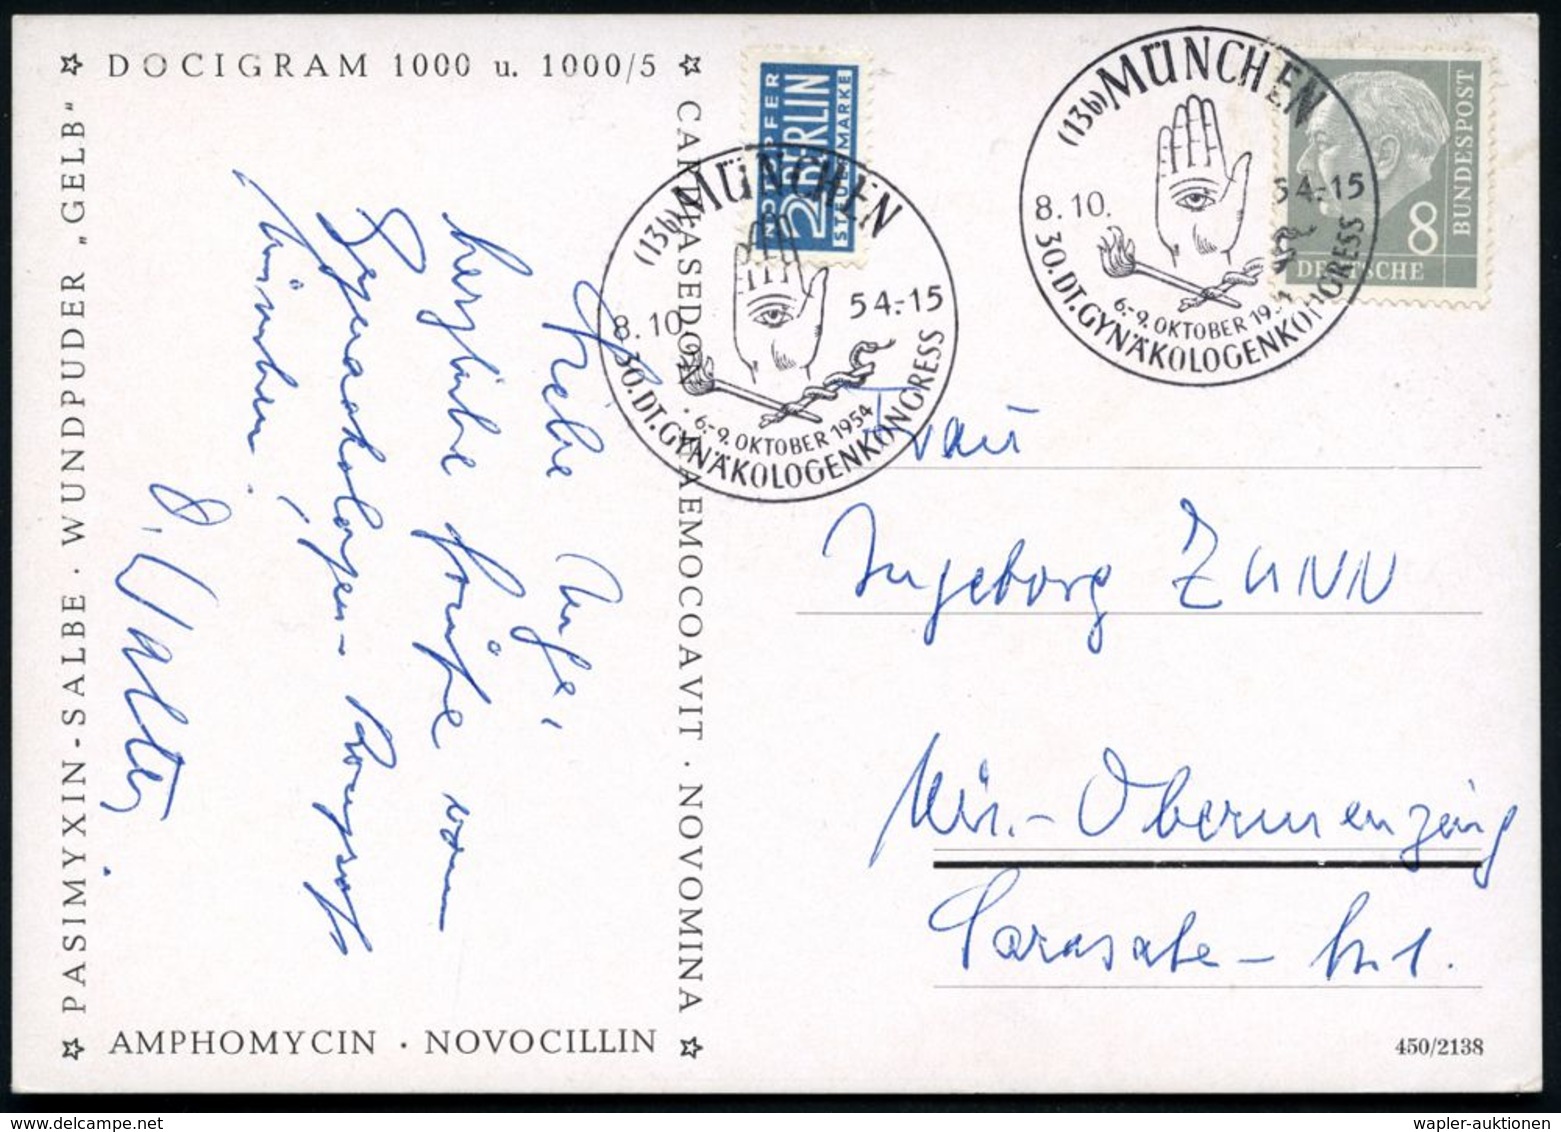 DOCIGRAM 1000 u. 1000/5
PASIMYXIN-SALBE · WUNDPUDER „GELB“
CARDIASEDON · HAEMOCOAVIT · NOVOMINA
AMPHOMYCIN · NOVOCILLIN
Liebe Inge,
herzliche Grüße vom
Gynaekologen-Kongreß
München
D. Walter
NOTOPFER
2 BERLIN
STEUERMARKE
(13b) MÜNCHEN
8.10. 54.-15
6.-9. OKTOBER 1954
30.DT.GYNÄKOLOGENKONGRESS
(13b) MÜNCHEN
8.10. 54.-15
6.-9. OKTOBER 1954
30.DT.GYNÄKOLOGENKONGRESS
DEUTSCHE
BUNDESPOST
8
Frau
Ingeborg ZANN
Mü.-Obermenzing
Sarasate-Str. 1.
450/2138
wapler-auktionen